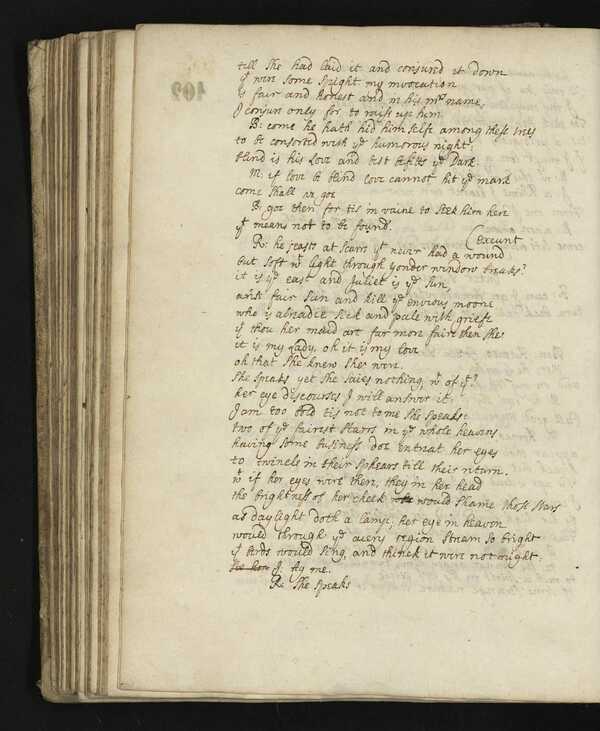 till she had laid it and coniured it down
yt were some spight my invocation
is fair and honest and in his mrs name,
I coniure only for to raise up him.
B: come he hath hid him selfe among these trees
to be consorted with ye humorous night:
blind is his Love and best befitts ye Dark.
M: if love be blind love cannot hit ye mark
come shall we goe
B: goe then for tis in vaine to seek him here
yt means not to be found.
(Exeunt
R: he jeasts at scarrs yt never had a wound
but soft wt light through yonder window breaks?
it is ye east and Juliet is ye sun,
arise fair sun and kill ye envious moone
who is alreadie sick and pale with griefe
yt thou her maid art far more faire then she
it is my Lady, oh it is my love
oh that she knew she were.
she speaks yet she saies nothing, wt of yt?
her eye discourses I will answer it.
I am too bold tis not to me she speaks:
two of ye fairest starrs in ye whole heavens
having some business doe entreat her eyes
to twincle in their sphears till their return.
wt if her eyes were there, they in her head
the brightness of her cheek would shame those stars
as daylight doth a lamp; her eye in heaven
would through ye ayery region stream so bright
yt birds would sing, and think it were not night.
J: Ay me.
R: she speaks
102